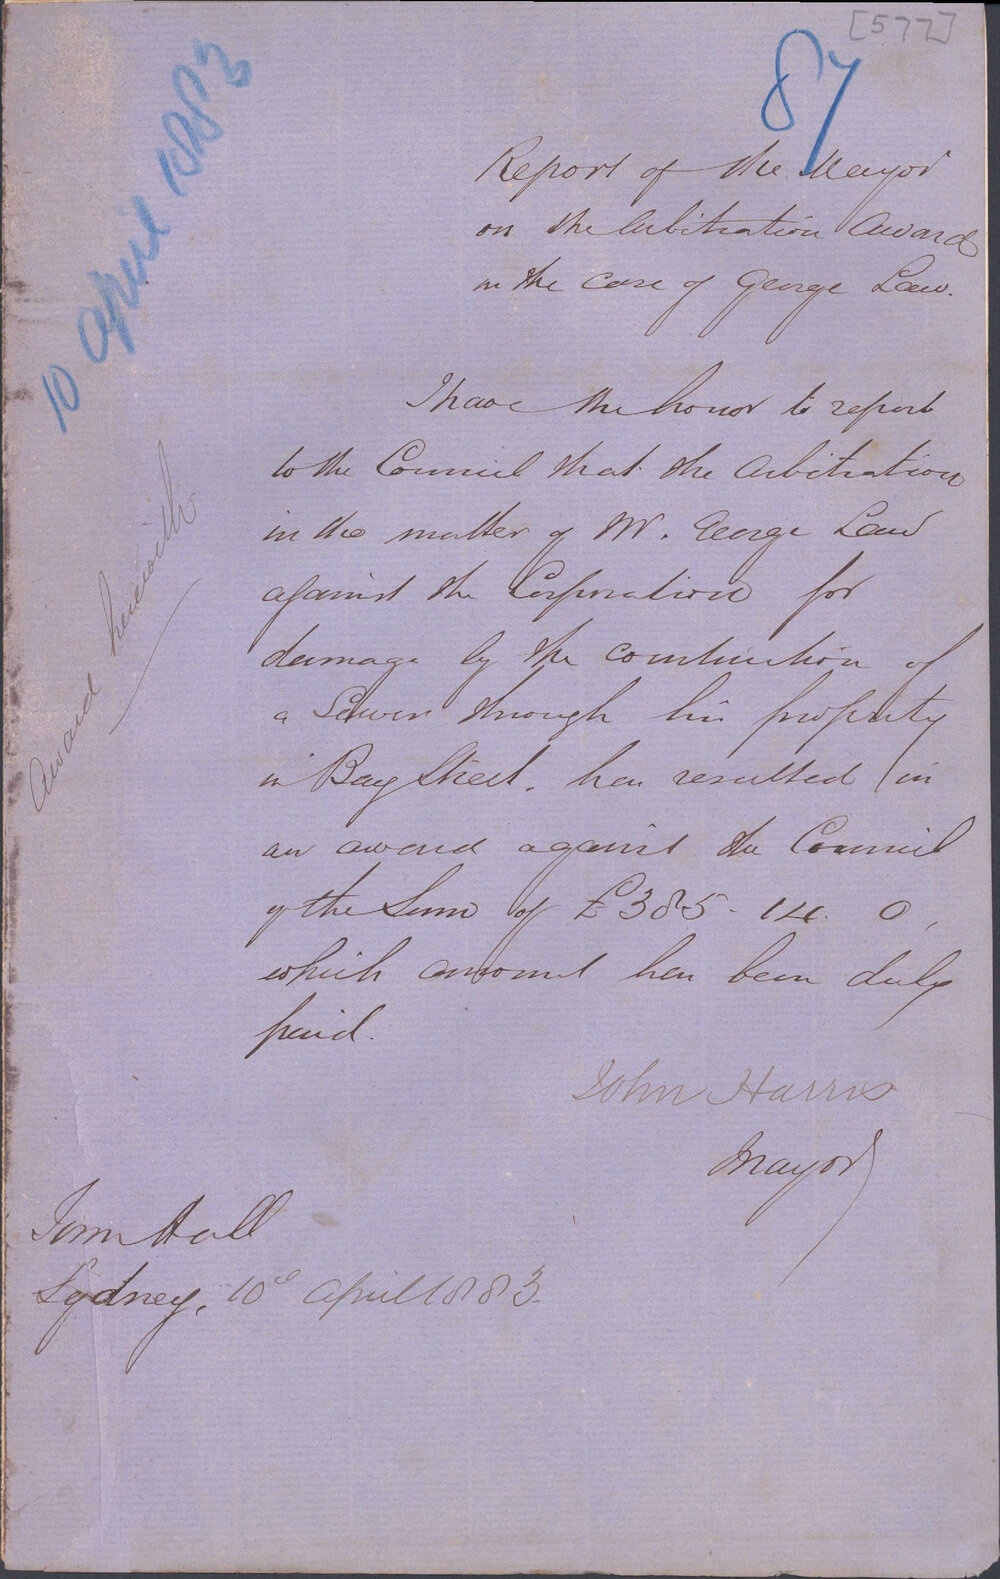 [577]
87
10 April 1883
Report of the Mayor
on the Arbitration Award
in the case of George Law.
I have the honor to report
to the Council that the Arbitration
in the matter of Mr. George Law
against the Corporation for
damage by the construction of
a Sewer through his property
in Bay Street. has resulted in
an award against the Council
of the Sum of £385 - 14. 0,
which amount has been duly
paid.
Award herewith
John Harris
Mayor
Town Hall
Sydney, 10th April 1883.